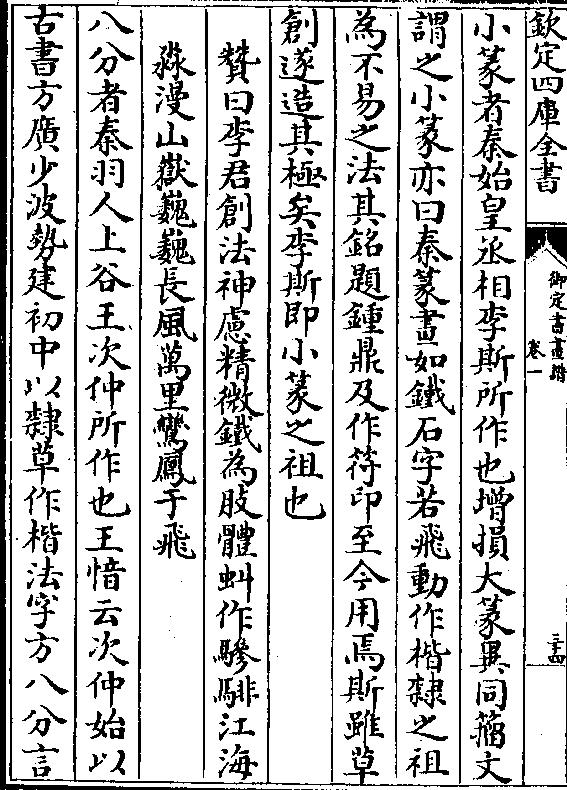 欽定四庫全書
御定書畫譜
卷一
三十四
小篆者秦始皇丞相李斯所作也增損大篆異同籀文
謂之小篆亦曰秦篆畫如鐵石字若飛動作楷隸之祖
為不易之法其銘題鍾鼎及作符印至今用焉斯雖草
創遂造其極矣李斯即小篆之祖也
贊曰李君創法神慮精微鐵為肢體虯作驂騑江海
淼漫山嶽巍巍長風萬里鸞鳳于飛
八分者秦羽人上谷王次仲所作也王愔云次仲始以
古書方廣少波勢建初中以隸草作楷法字方八分言